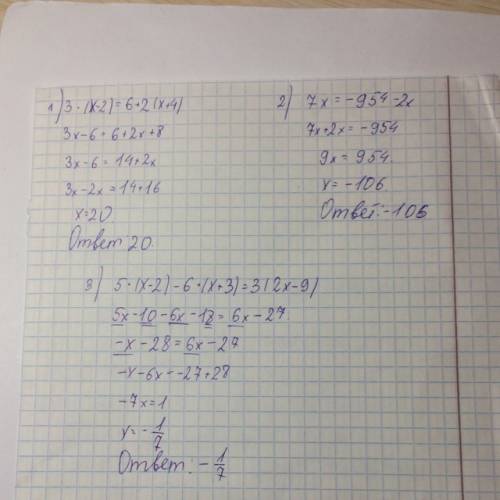 1) 3·(x-2)=6+2(x+4)
3x-6=6+2x+8
3x-6=14+2x
3x-2x=14+16
x=20
Ответ: 20
2) 7x=-954-2x
7x+2x=-954
9x=954.
x=-106
Ответ: -106
3) 5·(x-2)-6·(x+3)=3(2x-9)
5x-10-6x-18=6x-27
-x-28=6x-27
-x-6x=-27+28
-7x=1
x=-1/7
Ответ: -1/7